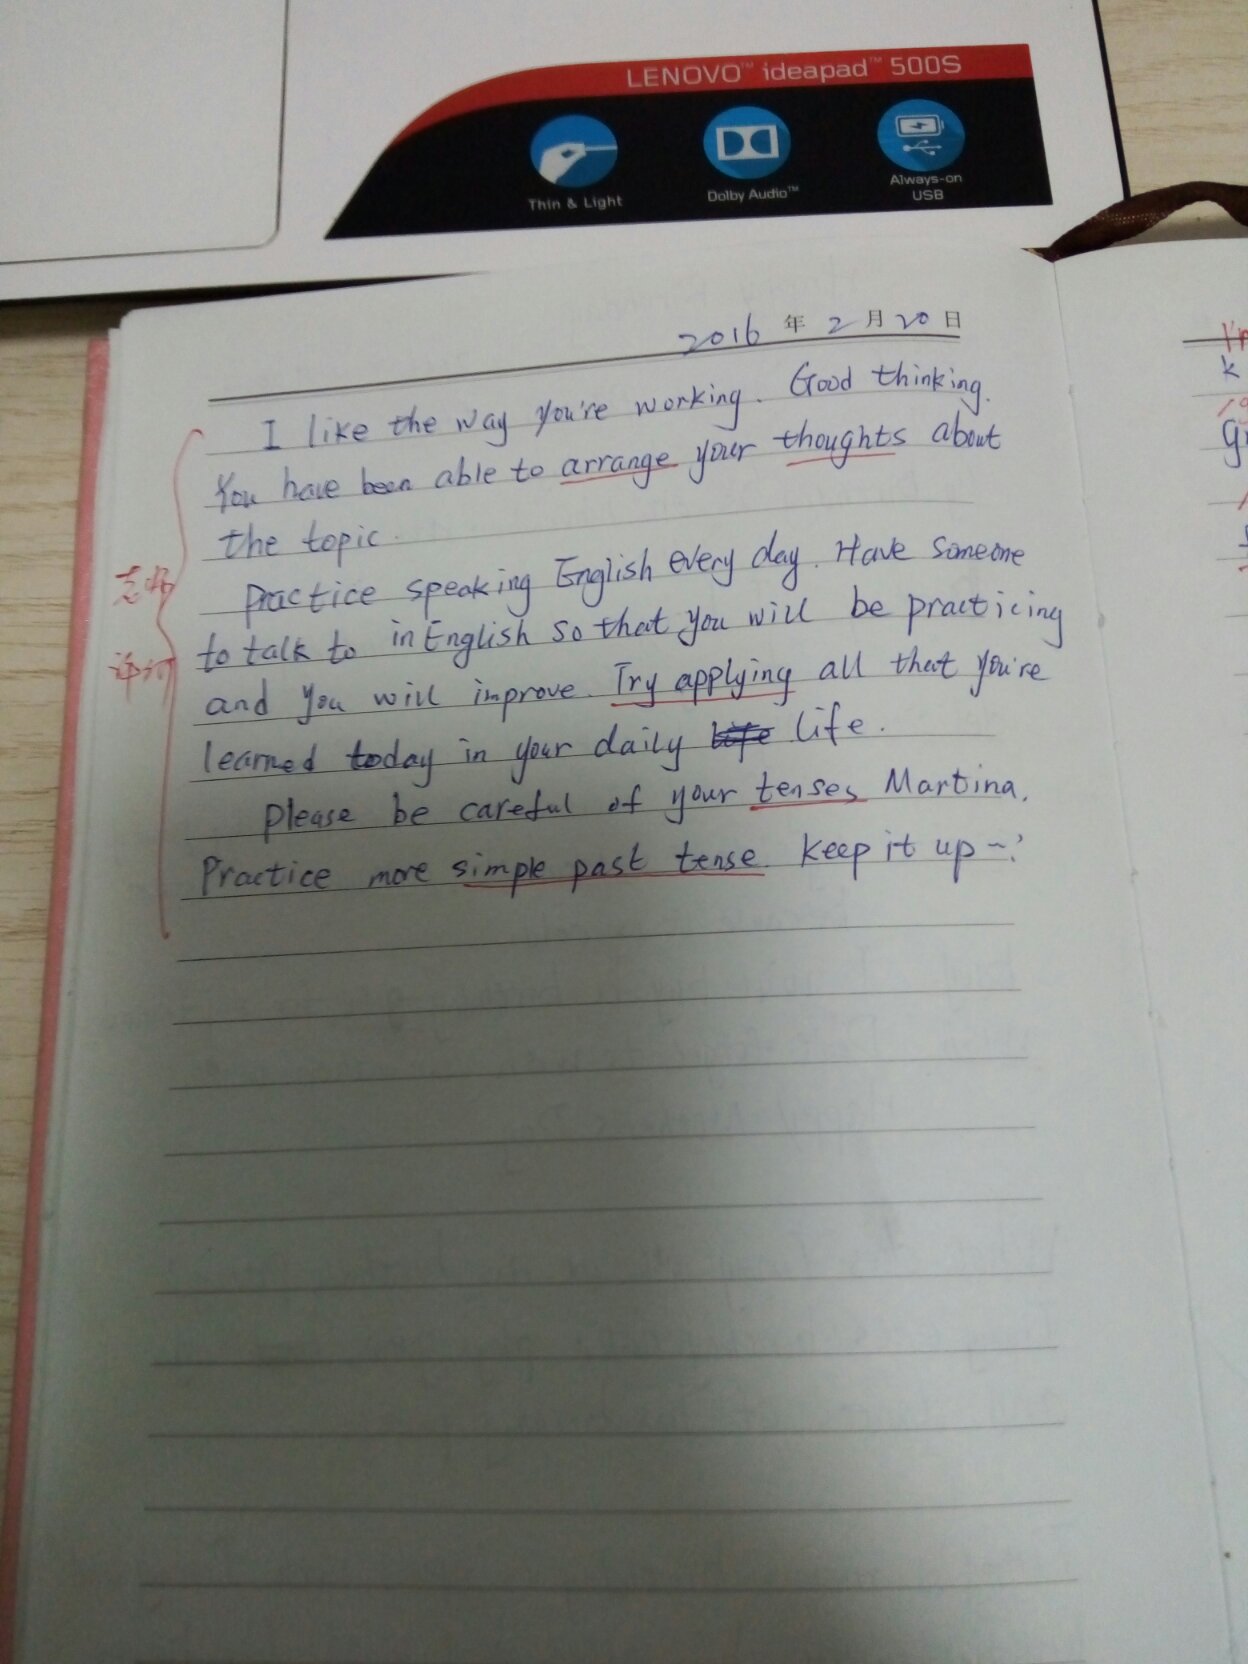 LENOVO™ ideapad™ 500S
Thin & Light
Dolby Audio™
Always-on
USB
2016 年 2 月 20 日
I like the way you're working. Good thinking.
You have been able to arrange your thoughts about
the topic.
Practice speaking English every day. Have someone
to talk to in English so that you will be practicing
and you will improve. Try applying all that you're
learned today in your daily life.
Please be careful of your tenses Martina.
Practice more simple past tense. Keep it up ~!